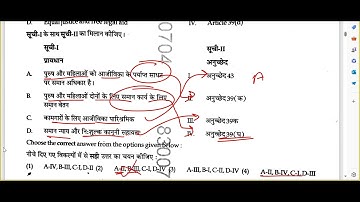 D. Equal justice and free legal aid IV. Article 39(d)
सूची-I के साथ सूची-II का मिलान कीजिए।
सूची-I सूची-II
प्रावधान अनुच्छेद
A. पुरुष और महिलाओं को आजीविका के पर्याप्त साधन I. अनुच्छेद 43 A
पर समान अधिकार है।
B. पुरुष और महिलाओं दोनों के लिए समान कार्य के लिए II. अनुच्छेद 39(क)
समान वेतन
C. कामगारों के लिए आजीविका पारिश्रमिक III. अनुच्छेद 39क
D. समान न्याय और निःशुल्क कानूनी सहायता IV. अनुच्छेद 39(घ)
Choose the correct answer from the options given below :
नीचे दिए गए विकल्पों में से सही उत्तर का चयन कीजिए :
(1) A-IV, B-III, C-I, D-II (2) A-II, B-III, C-I, D-IV (3) A-III, B-I, C-II, D-IV (4) A-II, B-IV, C-I, D-III